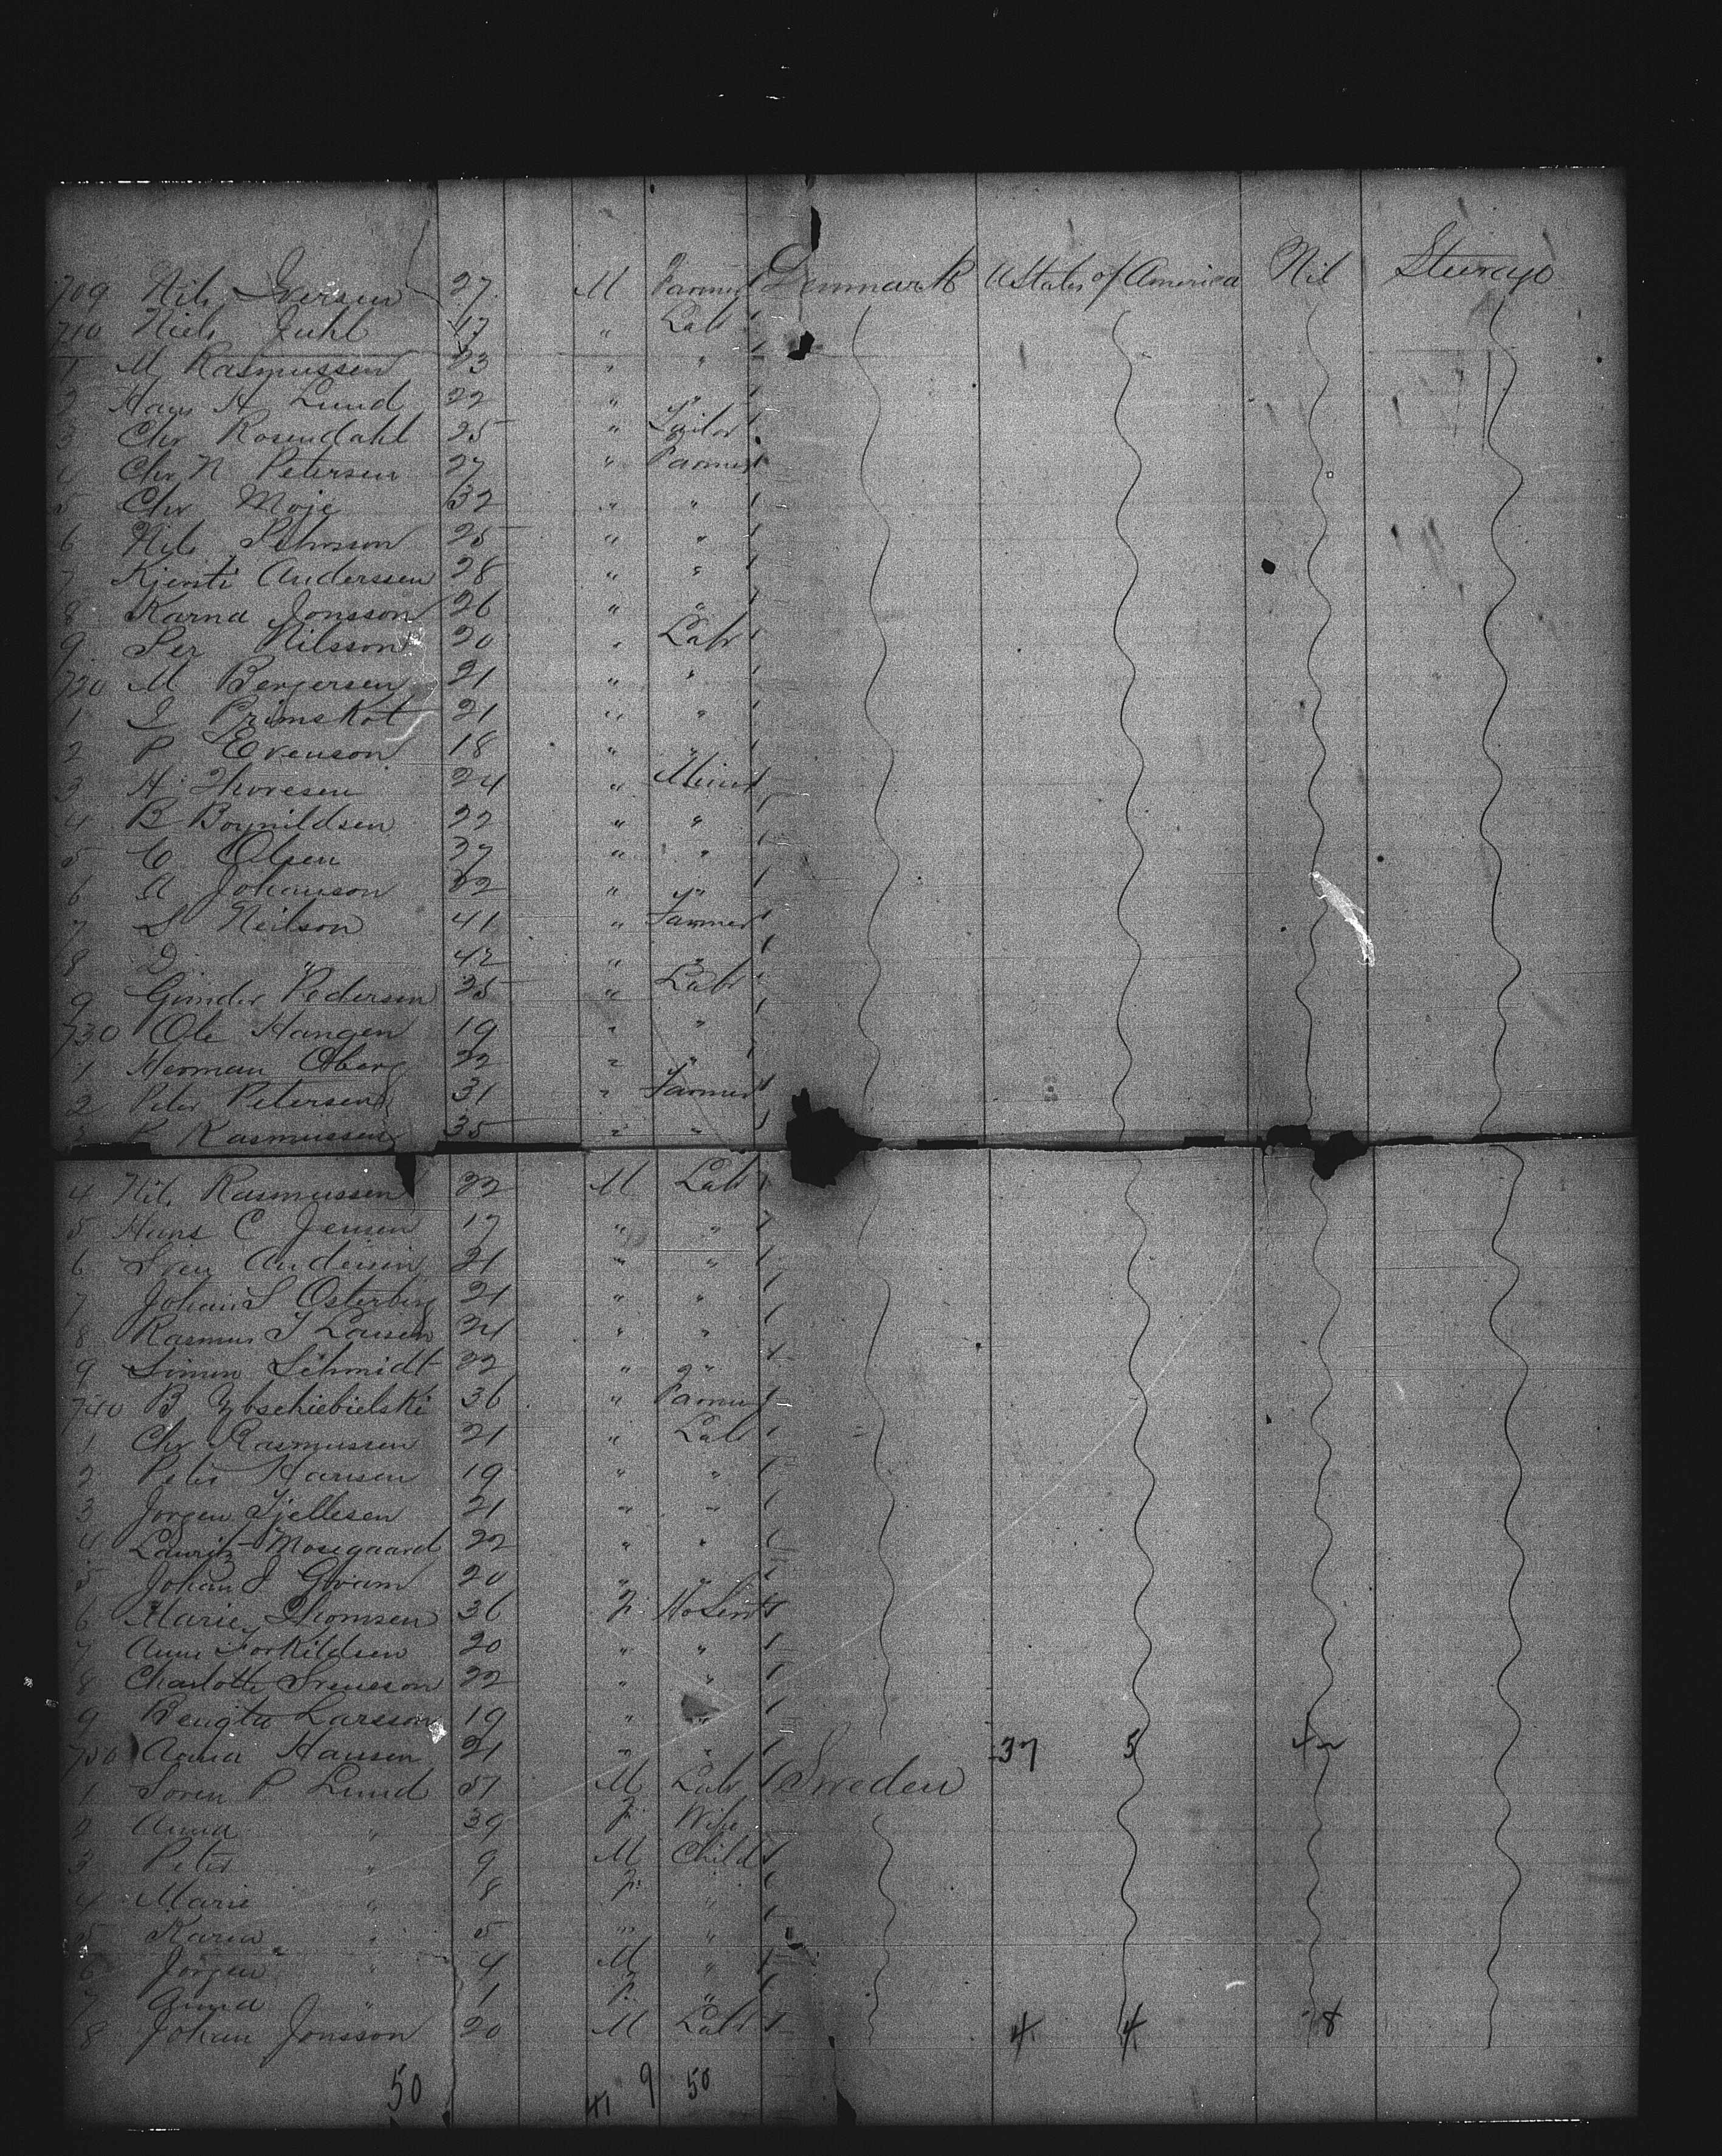 709 Nils Iversen 27 M Farmer Denmark U States of America Nil Steerage
710 Niels Juhl 17 " Labr
1 M Rasmussen 23 " "
2 Hans H Lund 22 " "
3 Chr Rosendahl 25 "
4 Chr N Petersen 27 " Farmer
5 Chr Moje 32 " "
6 Nils Pehrsson 25 " "
7 Kjersti Anderssen 28 " "
8 Karna Jonsson 26 " "
9 Per Nilsson 20 " Labr
720 M Bergersen 21 " "
1 21 " "
2 P Evenson 18 " "
3 H Thoresen 24 " Miner
4 B Boynildsen 22 " "
5 C Olsen 37 " "
6 A Johanson 32 " "
7 S Neilson 41 " Farmer
8 D " 42 " "
9 Gunder Pedersen 25 " Labr
730 Ole Hangen 19 " "
1 Herman Oberg 22 " "
2 Peter Petersen 31 " Farmer
3 P Rasmussen 35 " "
4 Nils Rasmussen 22 M Labr
5 Hans C Jensen 17 " "
6 Sven Andersen 21 " "
7 Johan S Osterberg 21 " "
8 Rasmus J Lausen 24 " "
9 Simon Schmidt 22 " "
740 B Zybschiebielski 36 " Farmer
1 Chr Rasmussen 21 " Labr
2 Peter Hansen 19 " "
3 Jorgen Tjellesen 21 " "
4 Lauritz Mosegaard 22 " "
5 Johan J Gram 20 " "
6 Marie Thomsen 36 F Ho Servt
7 Ane Torkildsen 20 " "
8 Charlotte Svensson 22 " "
9 Bengta Larsson 19 " "
750 Anna Hansen 21 " " 37 5 42
1 Soren P Lund 37 M Labr Sweden
2 Anna " 39 F Wife
3 Peter " 9 M Child
4 Marie " 8 F "
5 Karen " 5 " "
6 Jorgen " 4 M "
7 Anna " 1 F "
8 Johan Jonsson 20 M Labr 4 4 8
50 41 9 50